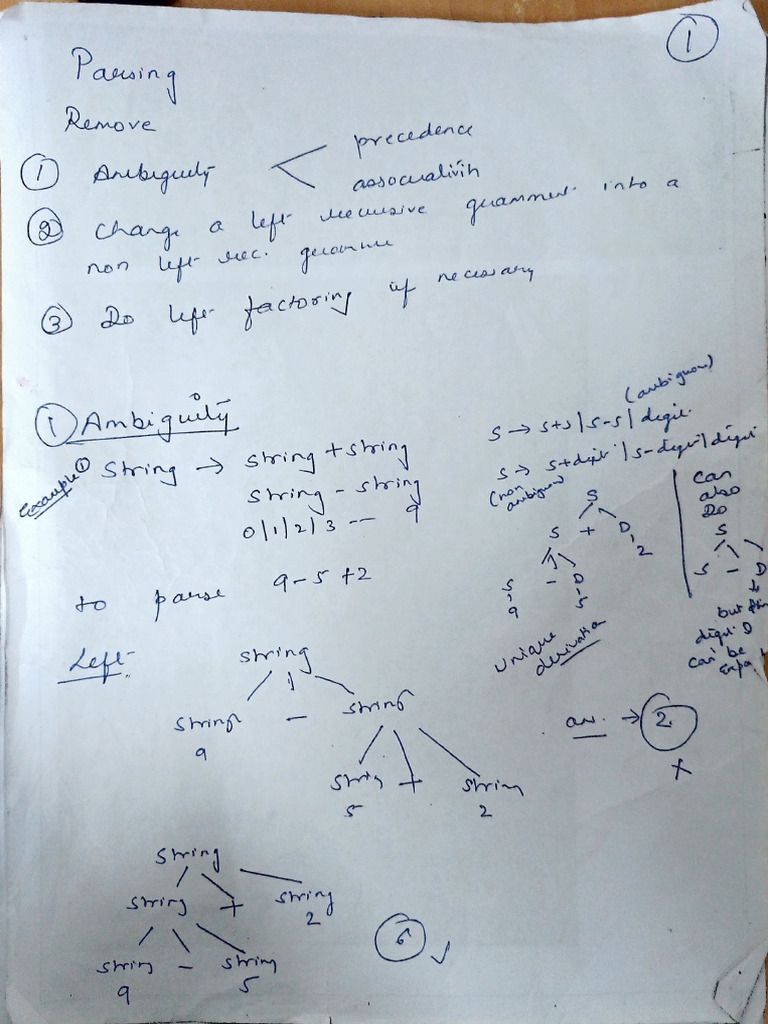 1
Parsing
Remove
① Ambiguity
precedence
associativity
② Change a left recursive grammar into a
non left rec. grammar
③ Do left factoring if necessary
① Ambiguity
Example ①
String → String + String
String - String
0|1|2|3 -- 9
to parse 9-5+2
(ambiguous)
S → S+S | S-S | digit
S → S+digit | S-digit | digit
(non ambiguous)
S
S + D
2
S - D
9 5
unique derivation
can
also
Do
S
S - D
but
digit D
can be
Left
String
String - String
9
String + String
5 2
an. → 2
X
String
String + String
2
String - String
9 5
6 ✓